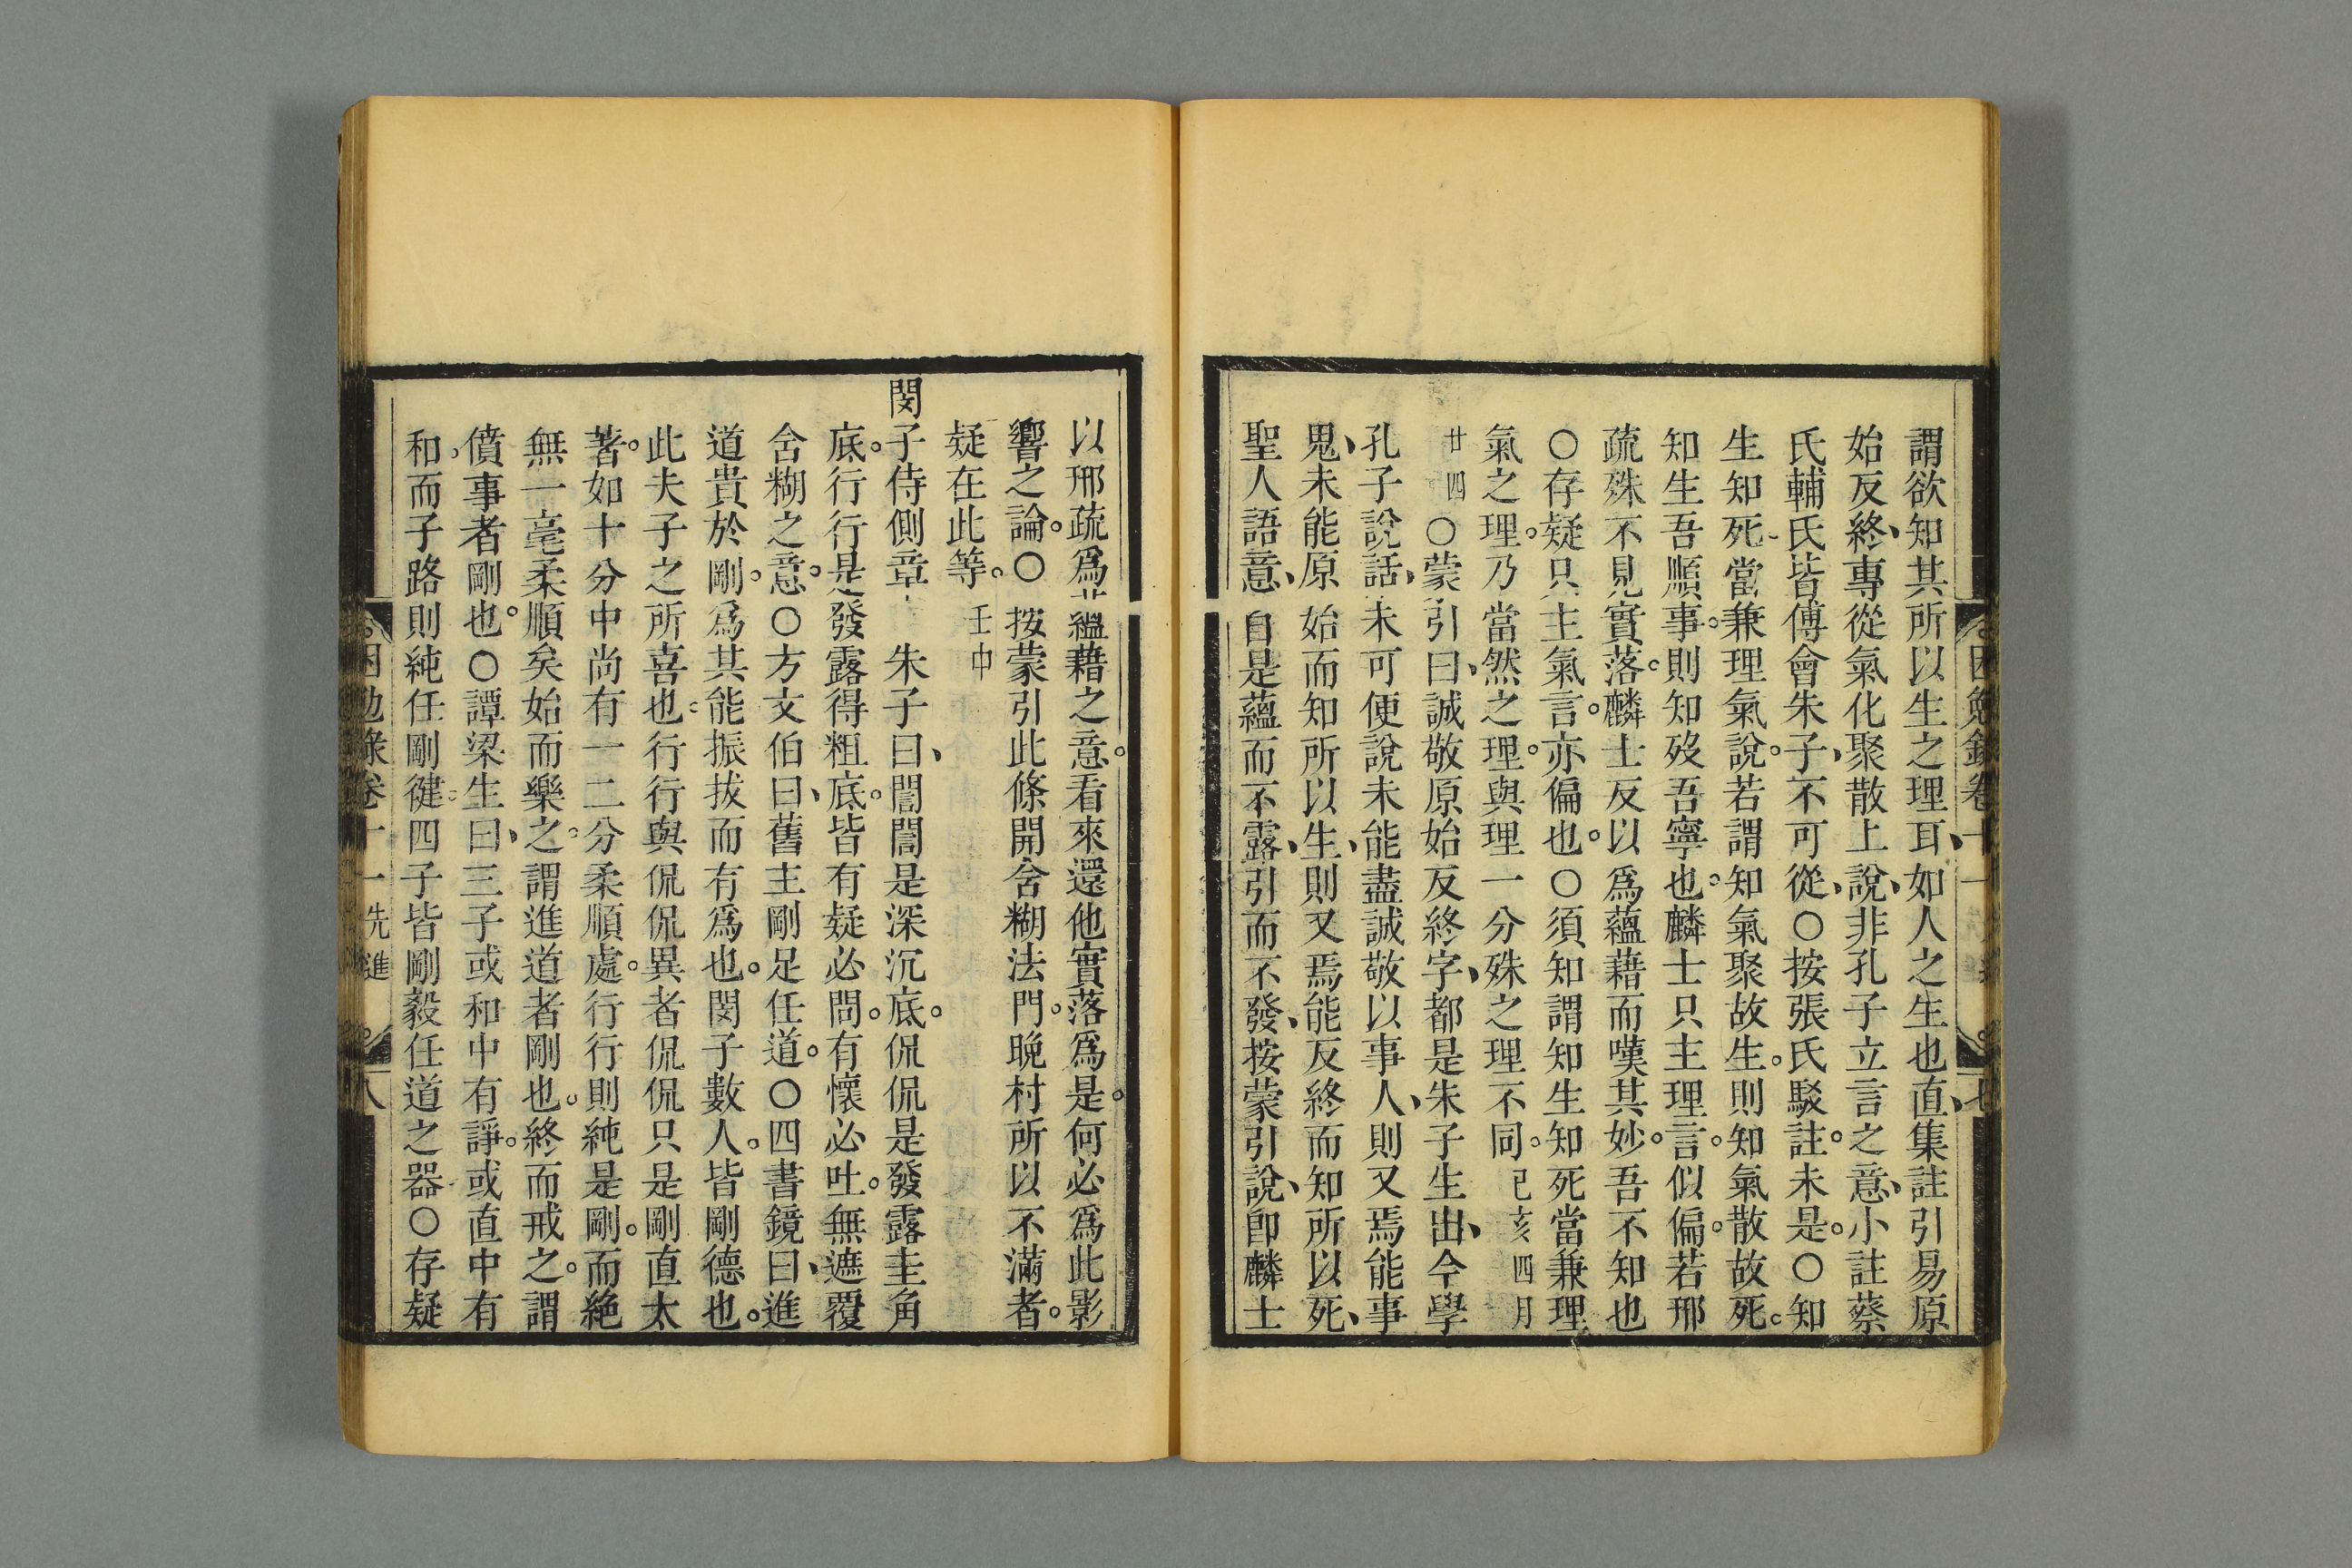 謂欲知其所以生之理耳、如人之生也直、集註引易原
始反終、專從氣化聚散上說、非孔子立言之意、小註蔡
氏輔氏皆傅會朱子、不可從、○按張氏駁註。未是。○知
生知死。當兼理氣說。若謂知氣聚故生。則知氣散故死。
知生吾順事。則知歿吾寧也。麟士只主理言。似偏。若邢
疏殊不見實落。麟士反以爲蘊藉而嘆其妙。吾不知也
○存疑只主氣言。亦偏也。○須知謂知生知死當兼理
氣之理。乃當然之理。與理一分殊之理不同。己亥四月
廿四○蒙引曰、誠敬原始反終字、都是朱子生出、今學
孔子說話、未可便說未能盡誠敬以事人、則又焉能事
鬼、未能原始而知所以生、則又焉能反終而知所以死、
聖人語意、自是蘊而不露、引而不發、按蒙引說、卽麟士
困勉錄卷十一 七
以邢疏爲蘊藉之意。看來還他實落爲是。何必爲此影
響之論。○按蒙引此條開含糊法門。晚村所以不滿者。
疑在此等。壬申
閔子侍側章 朱子曰、誾誾是深沉底。侃侃是發露圭角
底。行行是發露得粗底。皆有疑必問。有懷必吐。無遮覆
含糊之意。○方文伯曰、舊主剛足任道。○四書鏡曰、進
道貴於剛。爲其能振拔而有爲也。閔子數人。皆剛德也。
此夫子之所喜也。行行與侃侃異者侃侃只是剛直太
著。如十分中尚有一二分柔順處。行行則純是剛。而絕
無一毫柔順矣始而樂之。謂進道者剛也。終而戒之。謂
僨事者剛也。○譚梁生曰、三子或和中有諍。或直中有
和。而子路則純任剛健。四子皆剛毅任道之器○存疑
困勉錄卷十一 先進 八